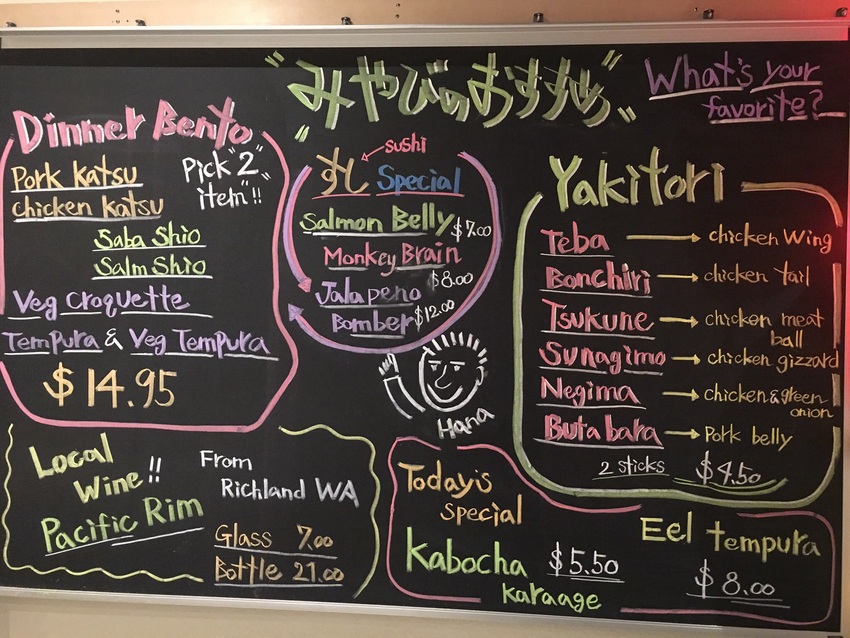 "みやびのおすすめ"
What's your
favorite?
Dinner Bento
Pork Katsu
chicken katsu
Pick "2"
item"!!
Saba Shio
Salm Shio
Veg Croquette
Tempura & Veg Tempura
$14.95
sushi
すし Special
Salmon Belly $7.00
Monkey Brain
$8.00
Jalapeno
Bomber $12.00
Hana
Yakitori
Teba → chicken Wing
Bonchiri → chicken tail
Tsukune → chicken meat
ball
Sunagimo → chicken gizzard
Negima → chicken & green
onion
Butabara → Pork belly
2 sticks $4.50
Local
Wine!!
Pacific Rim
From
Richland WA
Glass 7.00
Bottle 21.00
Today's
special
Kabocha
karaage
$5.50
Eel tempura
$8.00